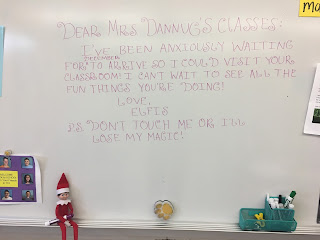 DEAR MRS DANNUG'S CLASSES:
I'VE BEEN ANXIOUSLY WAITING
DECEMBER
FOR TO ARRIVE SO I COULD VISIT YOUR
CLASSROOM! I CAN'T WAIT TO SEE ALL THE
FUN THINGS YOU'RE DOING!
LOVE,
ELFIS
P.S. DON'T TOUCH ME OR I'LL
LOSE MY MAGIC!